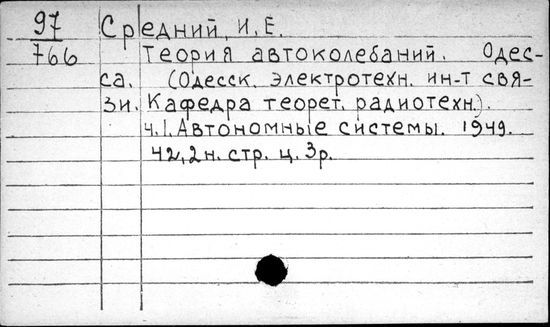 97 Средний, И. Е.
766 Теория автоколебаний. Одес-
са. (Одесск. электротехн. ин-т свя-
зи. Кафедра теорет. радиотехн.).
ч. I. Автономные системы. 1949.
42, 2 н. стр. ц. 3 р.